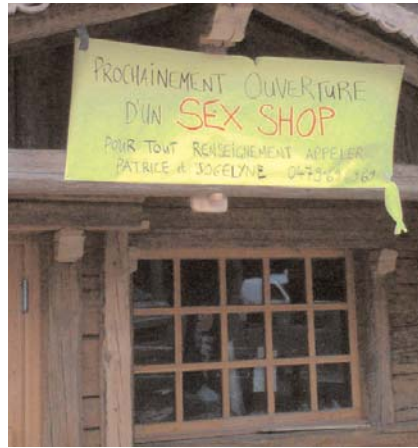 PROCHAINEMENT OUVERTURE
D'UN SEX SHOP
POUR TOUT RENSEIGNEMENT APPELER
PATRICE et JOCELYNE 0479.69.69.69